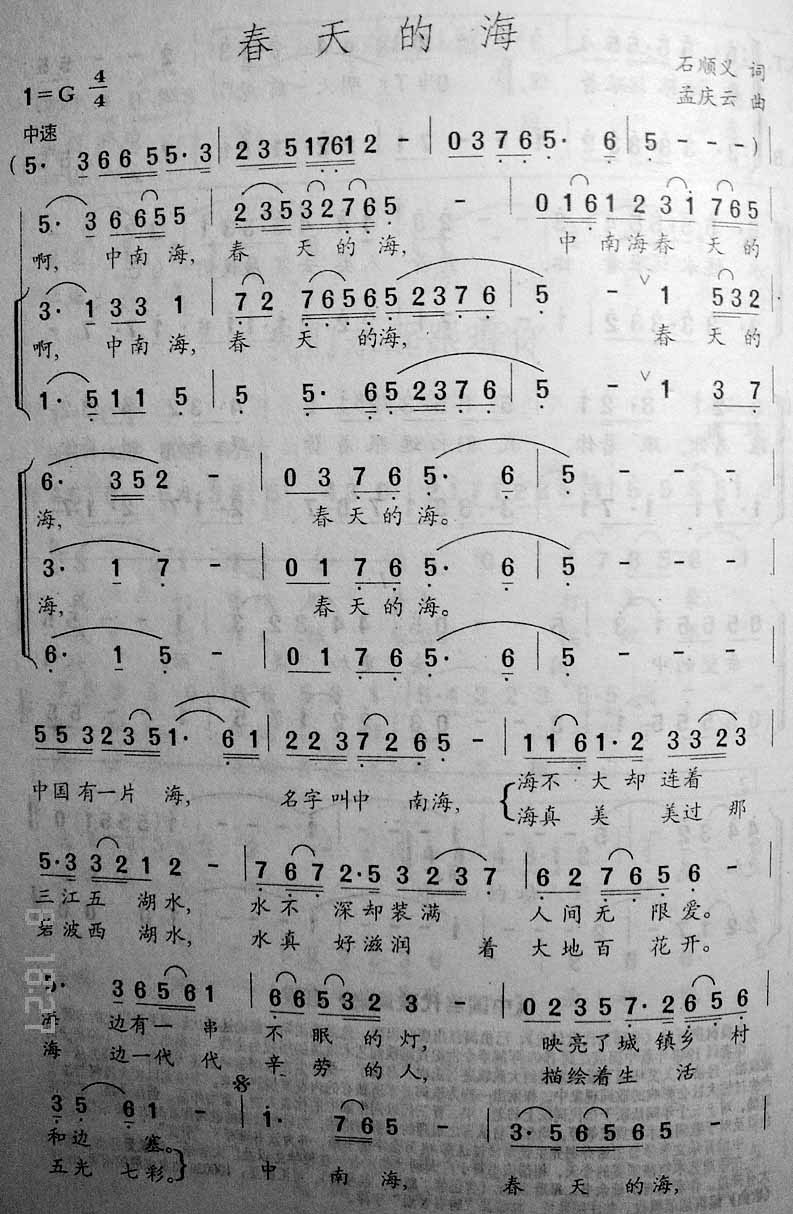 春天的海
1=G 4/4
石顺义 词
孟庆云 曲
中速
(5· 3 6 6 5 5· 3 | 2 3 5 1 7 6 1 2 - | 0 3 7 6 5· 6 | 5 - - -)
5· 3 6 6 5 5 | 2 3 5 3 2 7 6 5 - | 0 1 6 1 2 3 1 7 6 5
啊, 中南海, 春天的海, 中南海春天的
3· 1 3 3 1 | 7 2 7 6 5 6 5 2 3 7 6 | 5 - ∨ 1 5 3 2
啊, 中南海, 春天的海, 春天的
1· 5 1 1 5 | 5 5· 6 5 2 3 7 6 | 5 - ∨ 1 3 7
6· 3 5 2 - | 0 3 7 6 5· 6 | 5 - - -
海, 春天的海。
3· 1 7 - | 0 1 7 6 5· 6 | 5 - - -
海, 春天的海。
6· 1 5 - | 0 1 7 6 5· 6 | 5 - - -
5 5 3 2 3 5 1· 6 1 | 2 2 3 7 2 6 5 - | 1 1 6 1· 2 3 3 2 3
中国有一片海, 名字叫中南海, 海不大却连着
海真美 美过那
5· 3 3 2 1 2 - | 7 6 7 2· 5 3 2 3 7 | 6 2 7 6 5 6 -
三江五湖水, 水不深却装满 人间无限爱。
岩波西湖水, 水真好滋润着 大地百花开。
5· 3 6 5 6 1 | 6 6 5 3 2 3 - | 0 2 3 5 7· 2 6 5 6
边有一串 不眠的灯, 映亮了城镇乡村
海边一代代 辛劳的人, 描绘着生活
3 5 6 1 - | 1· 7 6 5 - | 3· 5 6 5 6 5
和边塞。
五光七彩。 中南海, 春天的海,